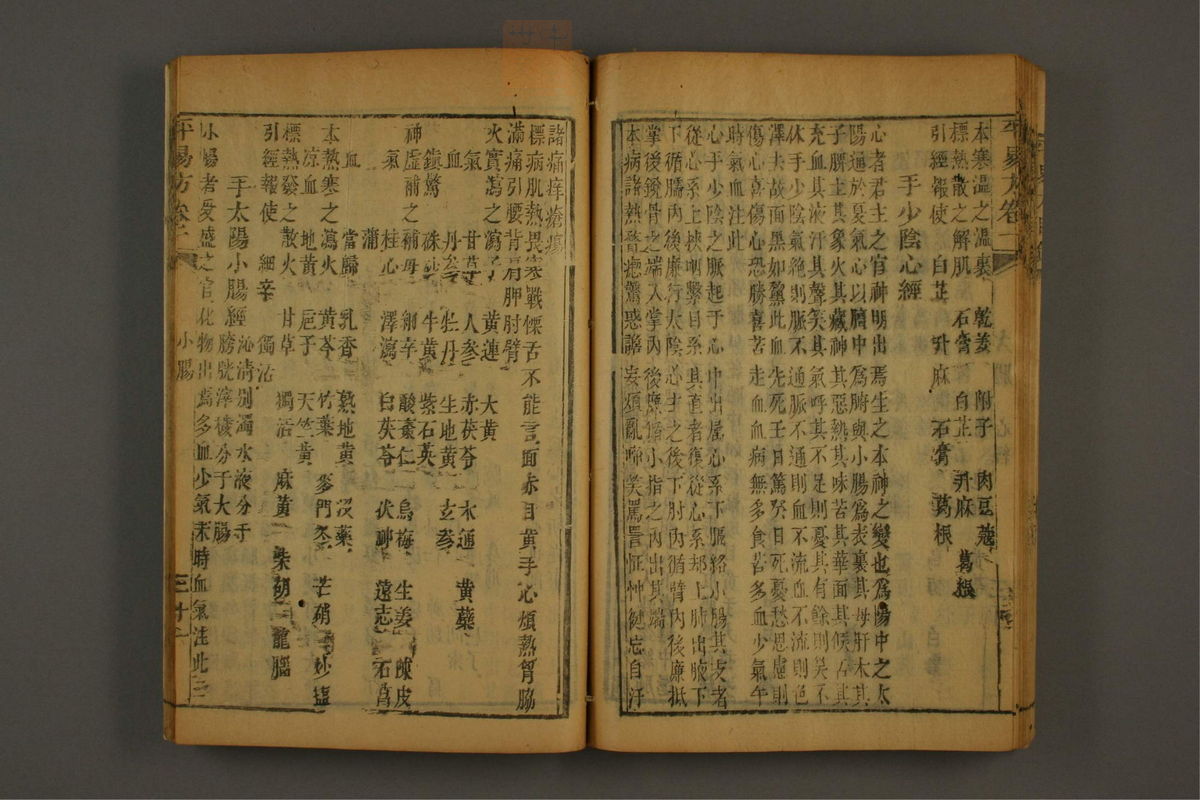 本寒溫之溫裏 乾姜 附子 肉豆蔻
標熱散之解肌 石膏 白芷 升麻 葛根
引經報使 白芷 升麻 石膏 葛根
手少陰心經
心者君主之官神明出焉生之本神之變也為陽中之太
陽通於夏氣心以臍中為腑與小腸為表裏其母肝木其
子脾土其象火其藏神其惡熱其味苦其華面其候舌其
充血其液汗其聲笑其氣呼其不足則憂其有餘則笑不
休手少陰氣絕則脈不通脈不通則血不流血不流則色
澤夫故面黑如黧此血先死壬日篤癸日死憂愁思慮則
傷心喜傷心恐勝喜苦走血血病無多食苦多血少氣午
時氣血注此
心手少陰之脈起于心中出屬心系下膈絡小腸其支者
從心系上挾咽繫目系其直者復從心系却上肺出腋下
下循臑內後廉行太陰心主之後下肘內循臂內後廉抵
掌後銳骨之端入掌內後廉循小指之內出其端
本病諸熱瞀瘛驚惑譫妄煩亂啼笑罵詈怔忡健忘自汗
諸痛痒瘡瘍
標病肌熱畏寒戰慄舌不能言面赤目黃手心煩熱胷脇
滿痛引腰背肩胛肘臂
火實瀉之瀉子 黃連 大黃
氣 甘草 人參 赤茯苓 木通 黃蘗
血 丹參 牡丹 生地黃 玄參
鎮驚 硃砂 牛黃 紫石英
神虛補之補母 細辛 酸棗仁 烏梅 生姜 陳皮
氣 桂心 澤瀉 白茯苓 伏神 遠志 石菖
蒲
血 當歸 乳香 熟地黃 沒藥
本熱寒之瀉火 黃芩 竹葉 麥門冬 芒硝 炒鹽
涼血 地黃 梔子 天竺黃
標熱發之散火 甘草 獨活 麻黃 柴胡 龍腦
引經報使 細辛 獨活
手太陽小腸經
小腸者受盛之官化物出焉多血少氣未時血氣注此
小腸 泌清別濁水液分于膀胱滓穢分于大腸
平易方卷二 三十二